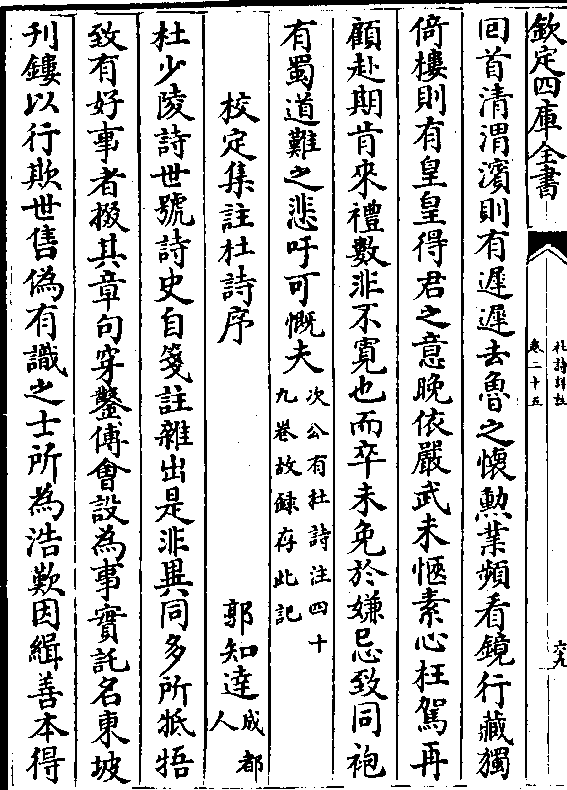 欽定四庫全書
杜詩詳註
卷二十五
六九
回首清渭濱則有遲遲去魯之懷勲業頻看鏡行藏獨
倚樓則有皇皇得君之意晚依嚴武未愜素心枉駕再
顧赴期肯來禮數非不寛也而卒未免於嫌忌致同袍
有蜀道難之悲吁可慨夫
次公有杜詩注四十
九卷故錄存此記
校定集註杜詩序
郭知達
成都
人
杜少陵詩世號詩史自箋註雜出是非異同多所牴牾
致有好事者掇其章句穿鑿傅會設為事實託名東坡
刋鏤以行欺世售偽有識之士所為浩歎因緝善本得